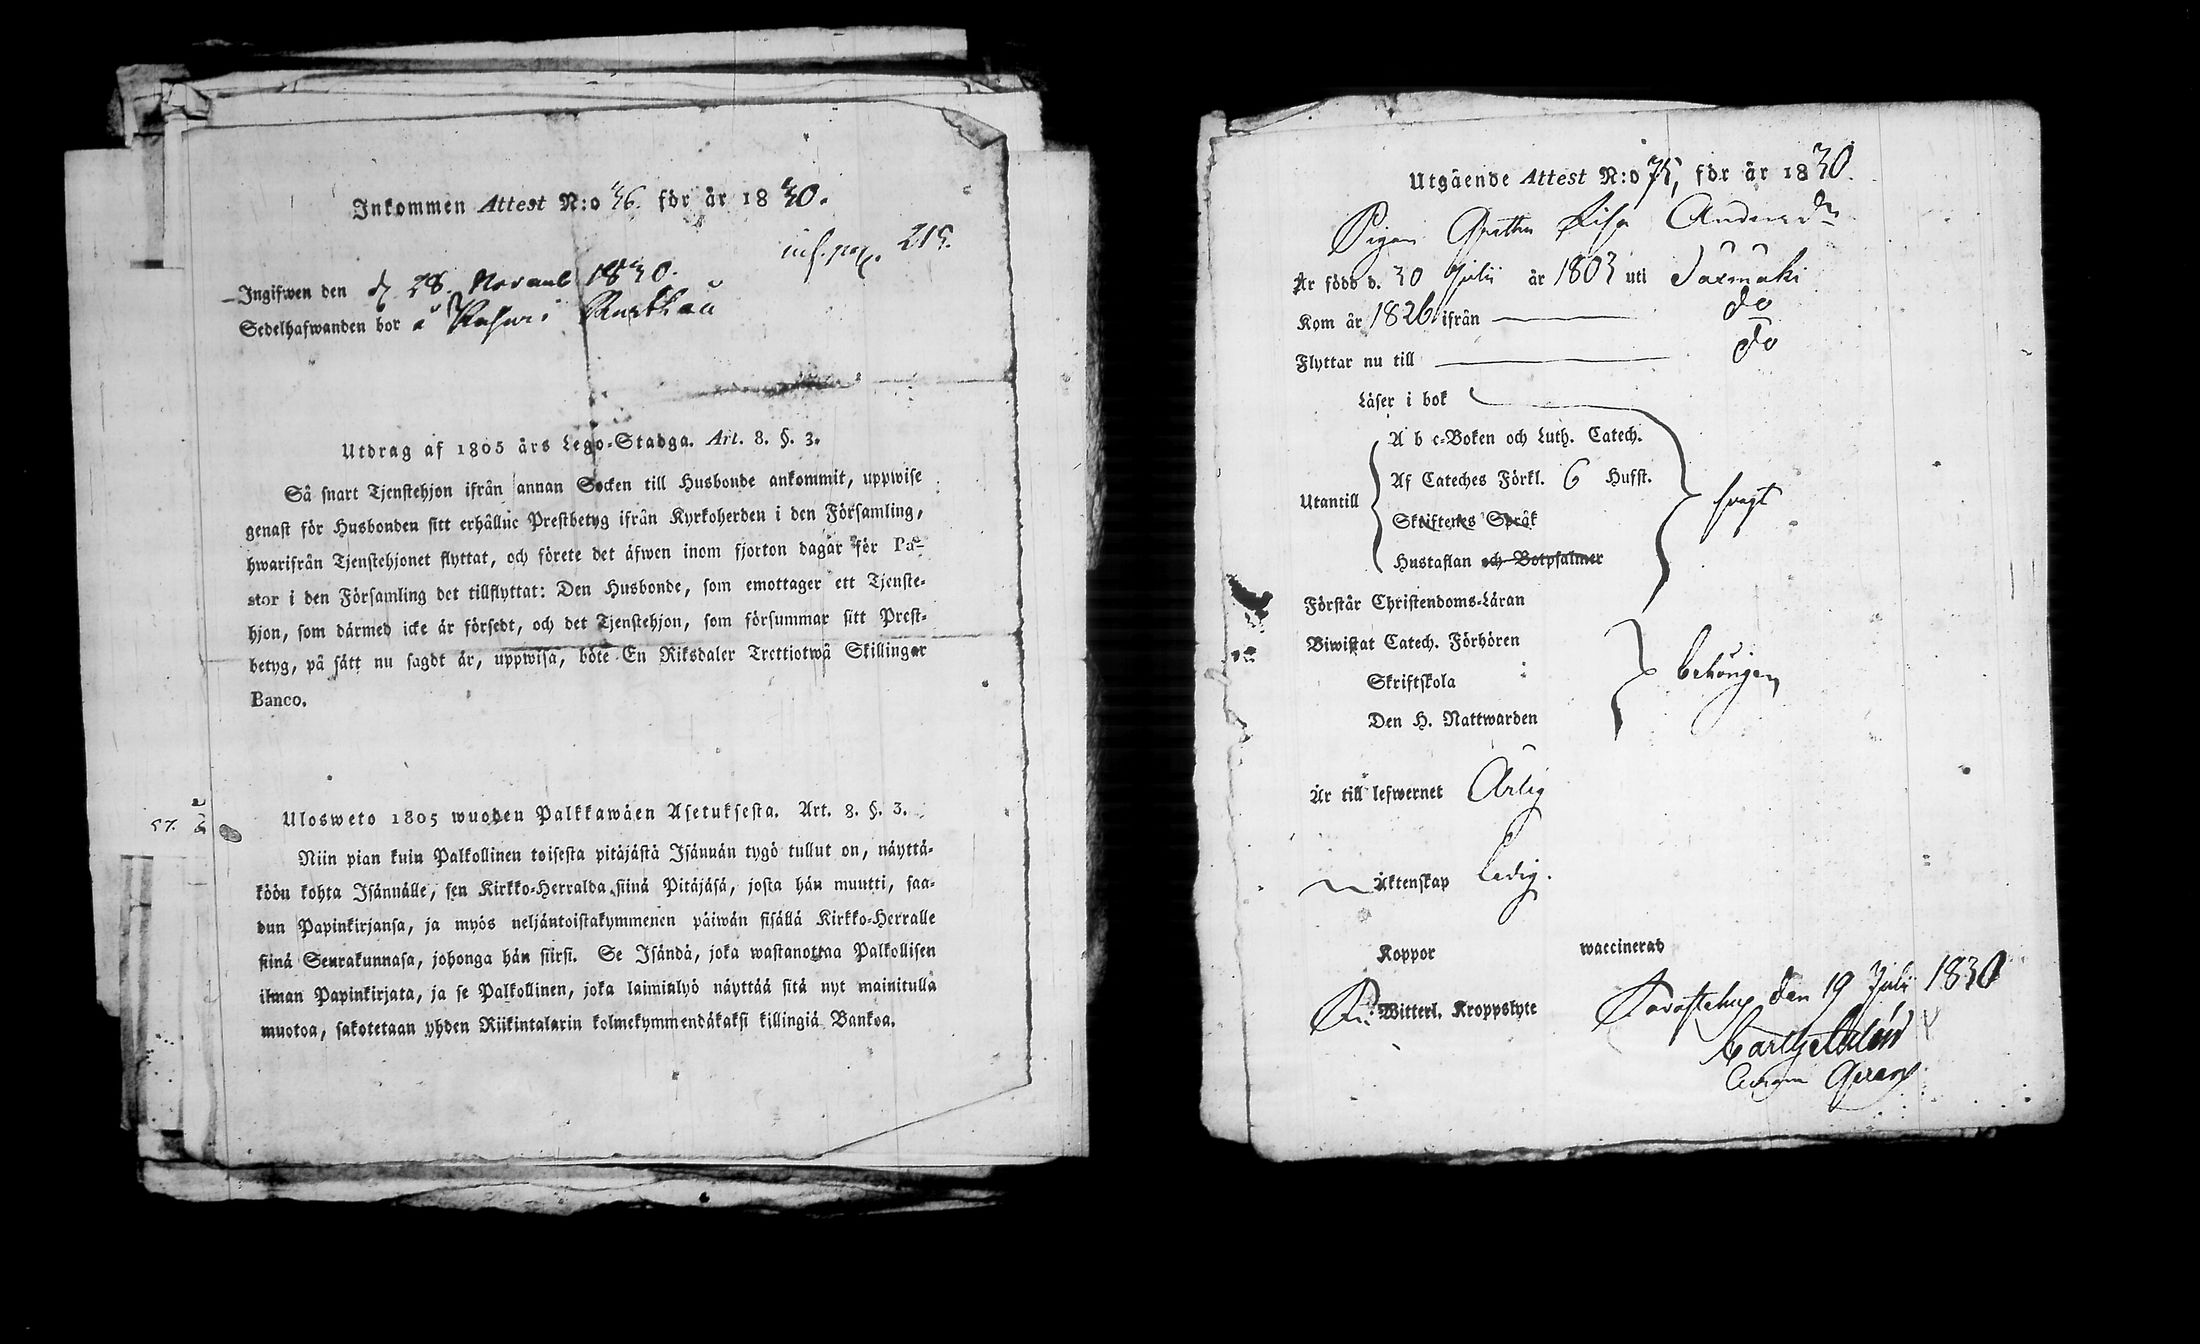 Inkommen Attest N:o 36. för år 1830.
inf. pag. 219.
Ingifwen den d 28 Novemb 1830.
Sedelhafwanden bor å
Utdrag af 1805 års Lego-Stadga. Art. 8. §. 3.
Så snart Tjenstehjon ifrån annan Socken till Husbonde ankommit, uppwise
genast för Husbonden sitt erhållne Prestbetyg ifrån Kyrkoherden i den Församling,
hwarifrån Tjenstehjonet flyttat, och förete det äfwen inom fjorton dagar för Pa-
stor i den Församling det tillflyttat: Den Husbonde, som emottager ett Tjenste-
hjon, som därmed icke är försedt, och det Tjenstehjon, som försummar sitt Prest-
betyg, på sätt nu sagdt är, uppwisa, böte En Riksdaler Trettiotwå Skillingar
Banco.
57.
Ulosweto 1805 wuoden Palkkawäen Asetuksesta. Art. 8. §. 3.
Niin pian kuin Palkollinen toisesta pitäjästä Isännän tygö tullut on, näyttä-
köön kohta Isännälle, sen Kirkko-Herralda siinä Pitäjäsä, josta hän muutti, saa-
dun Papinkirjansa, ja myös neljäntoistakymmenen päiwän sisällä Kirkko-Herralle
siinä Seurakunnasa, johonga hän siirsi. Se Isändä, joka wastanottaa Palkollisen
ilman Papinkirjata, ja se Palkollinen, joka laiminlyö näyttää sitä nyt mainitulla
muotoa, sakotetaan yhden Riikintalarin kolmekymmendäkaksi killingiä Bankoa.
Utgående Attest N:o 75, för år 1830.
Pigan Gretha Lisa Andersdr
Är född d. 30 Julii år 1803 uti Saxmäki
Kom år 1826 ifrån do
Flyttar nu till do
Läser i bok
A b c-Boken och Luth. Catech.
Af Cateches Förkl. 6 Hufst.
Utantill
Skriftenes Språk
svagt
Hustaflan och Botpsalmer
Förstår Christendoms-Läran
Biwistat Catech. Förhören
Skriftskola
behörigen
Den H. Nattwarden
Är till lefwernet Ärlig
Äktenskap Ledig.
Koppor waccinerad
Witterl. Kroppslyte
Tavastehus den 19 Julii 1830